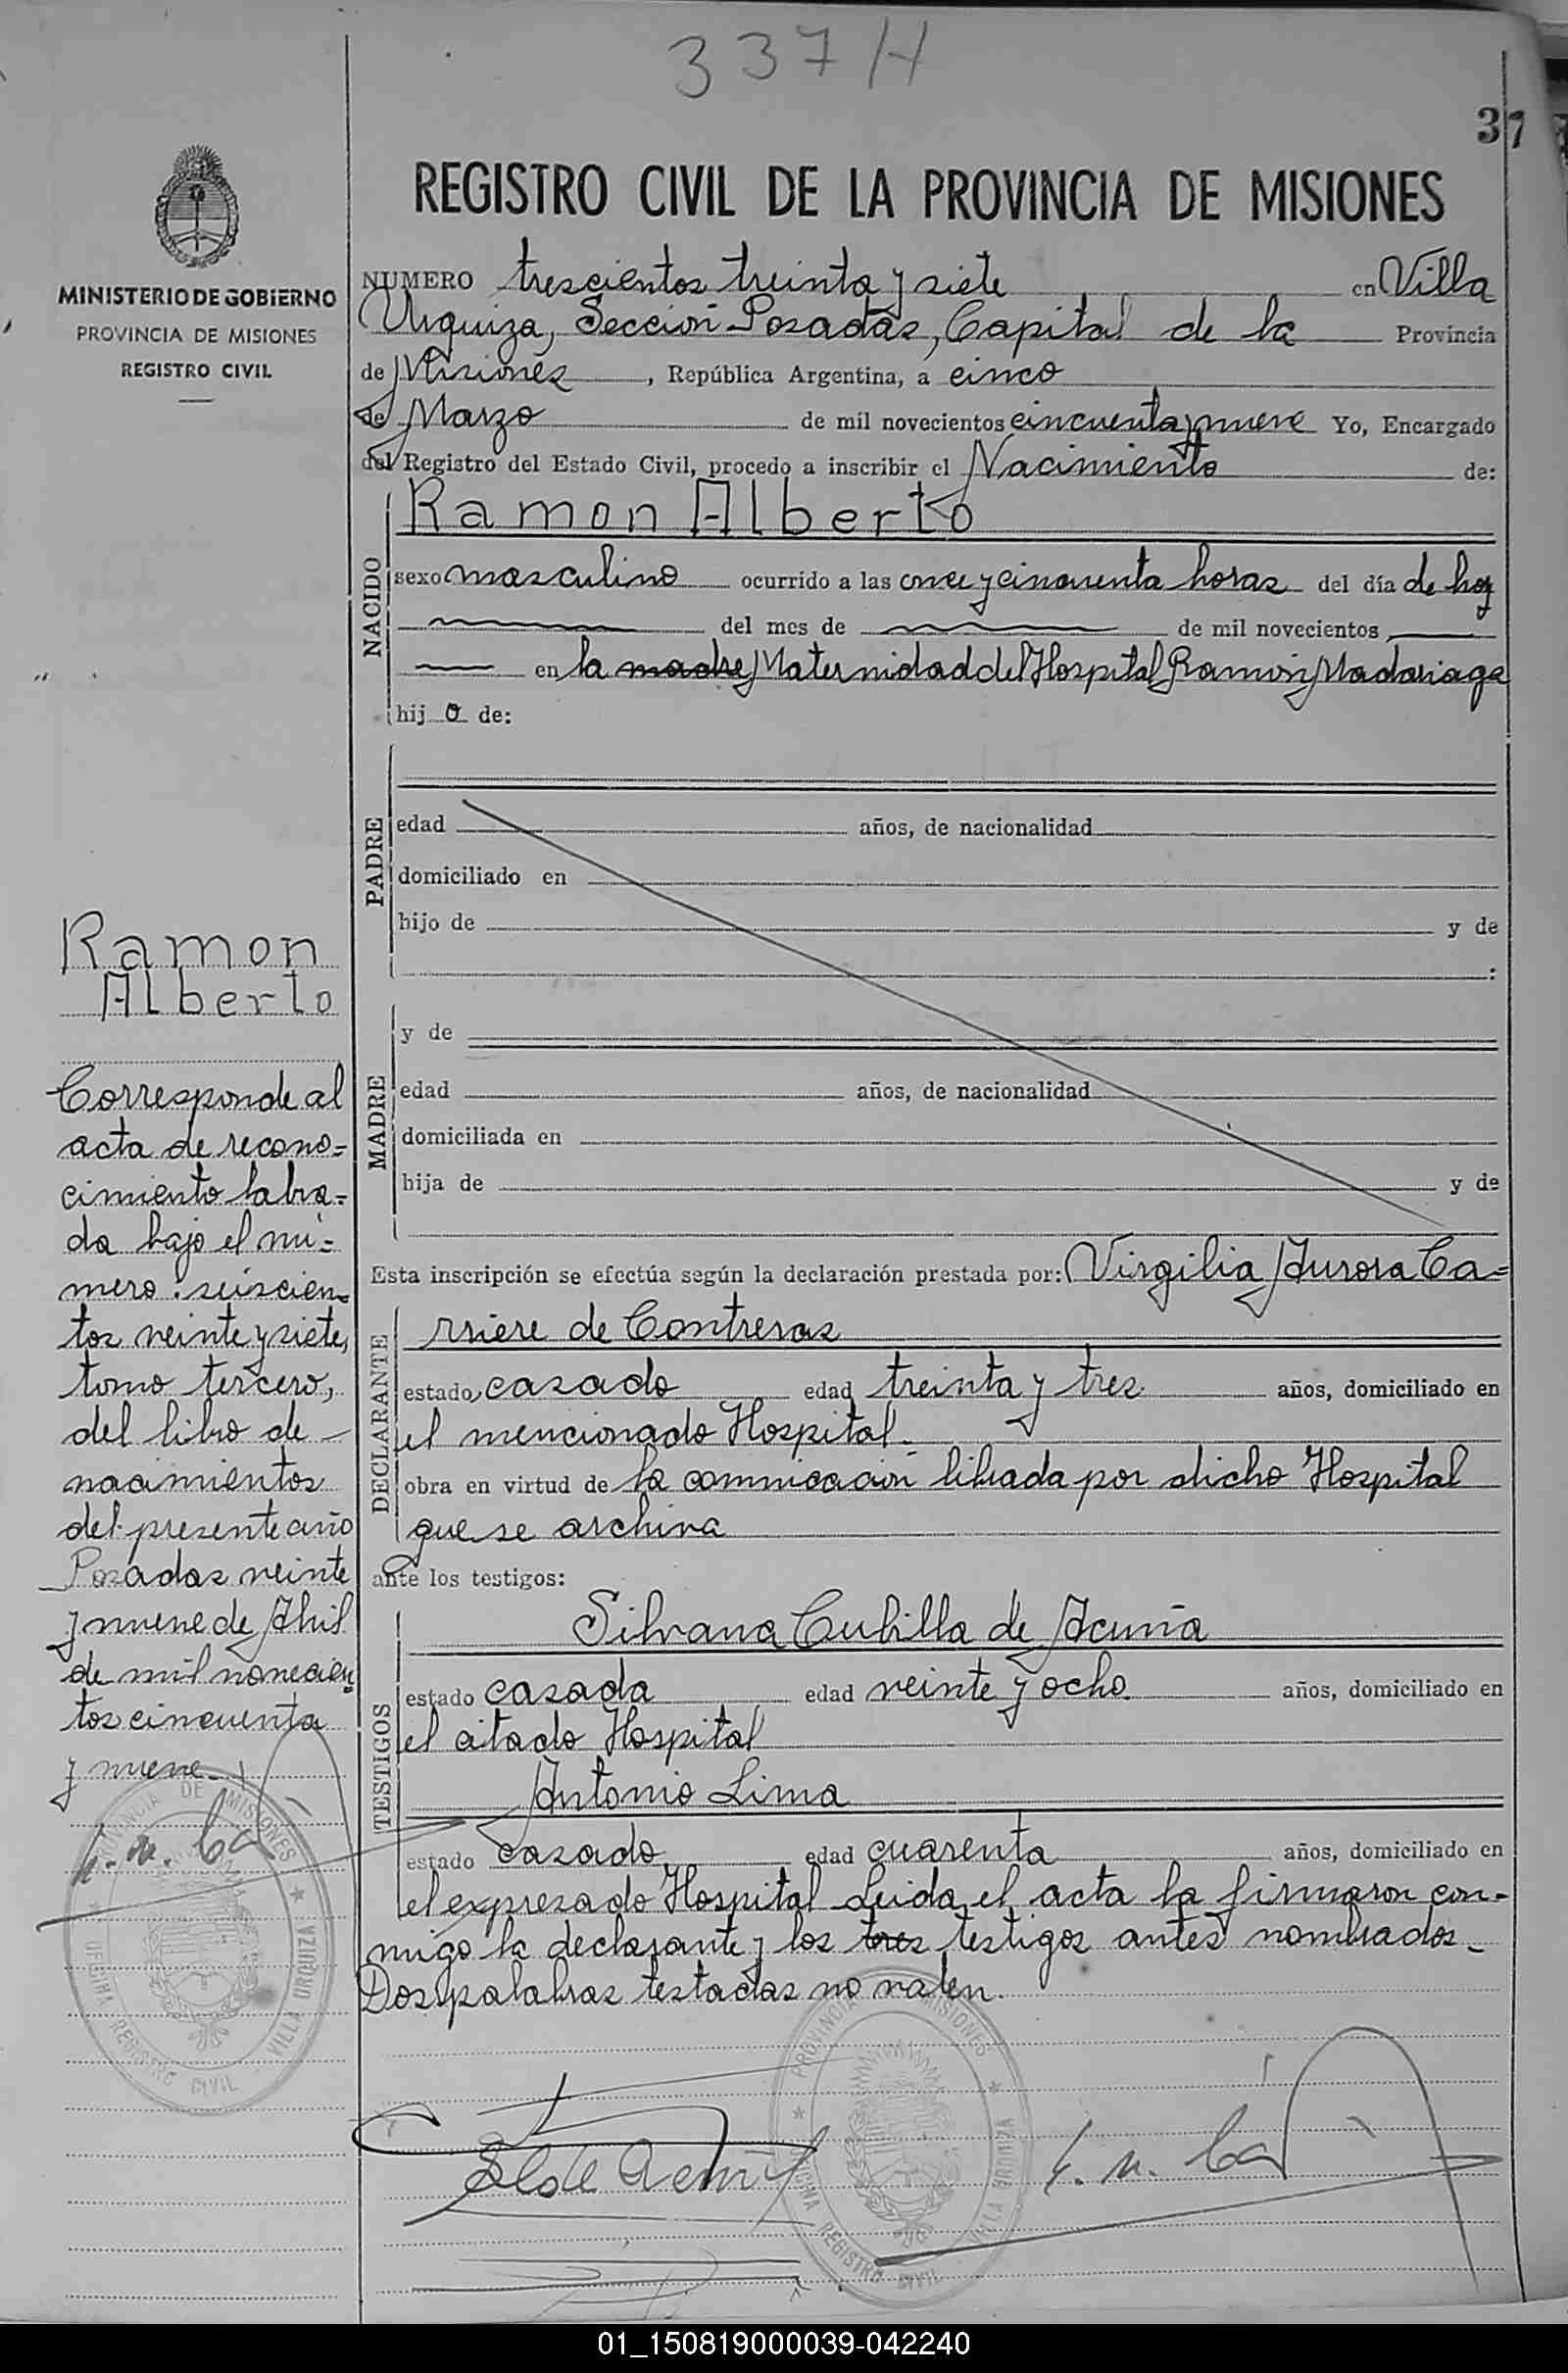 337H
37
REGISTRO CIVIL DE LA PROVINCIA DE MISIONES
MINISTERIO DE GOBIERNO
PROVINCIA DE MISIONES
REGISTRO CIVIL
NUMERO trescientos treinta y siete en Villa
Urquiza, Sección Posadas, Capital de la Provincia
de Misiones, República Argentina, a cinco
de Marzo de mil novecientos cincuenta y nueve Yo, Encargado
del Registro del Estado Civil, procedo a inscribir el Nacimiento de:
Ramon Alberto
NACIDO
sexo masculino ocurrido a las once y cincuenta horas del día de hoy
del mes de de mil novecientos
en la madre Maternidad del Hospital Ramón Madariaga
hijo de:
PADRE
edad años, de nacionalidad
domiciliado en
hijo de y de
:
MADRE
y de
edad años, de nacionalidad
domiciliada en
hija de y de
Esta inscripción se efectúa según la declaración prestada por: Virgilia Aurora Ca=
rriere de Contreras
DECLARANTE
estado casado edad treinta y tres años, domiciliado en
el mencionado Hospital.
obra en virtud de la comnicación librada por dicho Hospital
que se archiva
ante los testigos:
TESTIGOS
Silvana Cubilla de Acuña
estado casada edad veinte y ocho años, domiciliado en
el citado Hospital
Antonio Lima
estado casado edad cuarenta años, domiciliado en
el expresado Hospital Leida el acta la firmaron con-
migo la declarante y los tres testigos antes nombrados-
Dos palabras testadas no valen.
Ramon
Alberto
Corresponde al
acta de recono=
cimiento labra=
da bajo el nú=
mero: seiscien=
tos veinte y siete,
tomo tercero,
del libro de
nacimientos
del presente año
Posadas veinte
y nueve de Abril
de mil novecien=
tos cincuenta
y nueve.
PROVINCIA DE MISIONES
OFICINA REGISTRO CIVIL VILLA URQUIZA
PROVINCIA DE MISIONES
OFICINA REGISTRO CIVIL VILLA URQUIZA
01_150819000039-042240